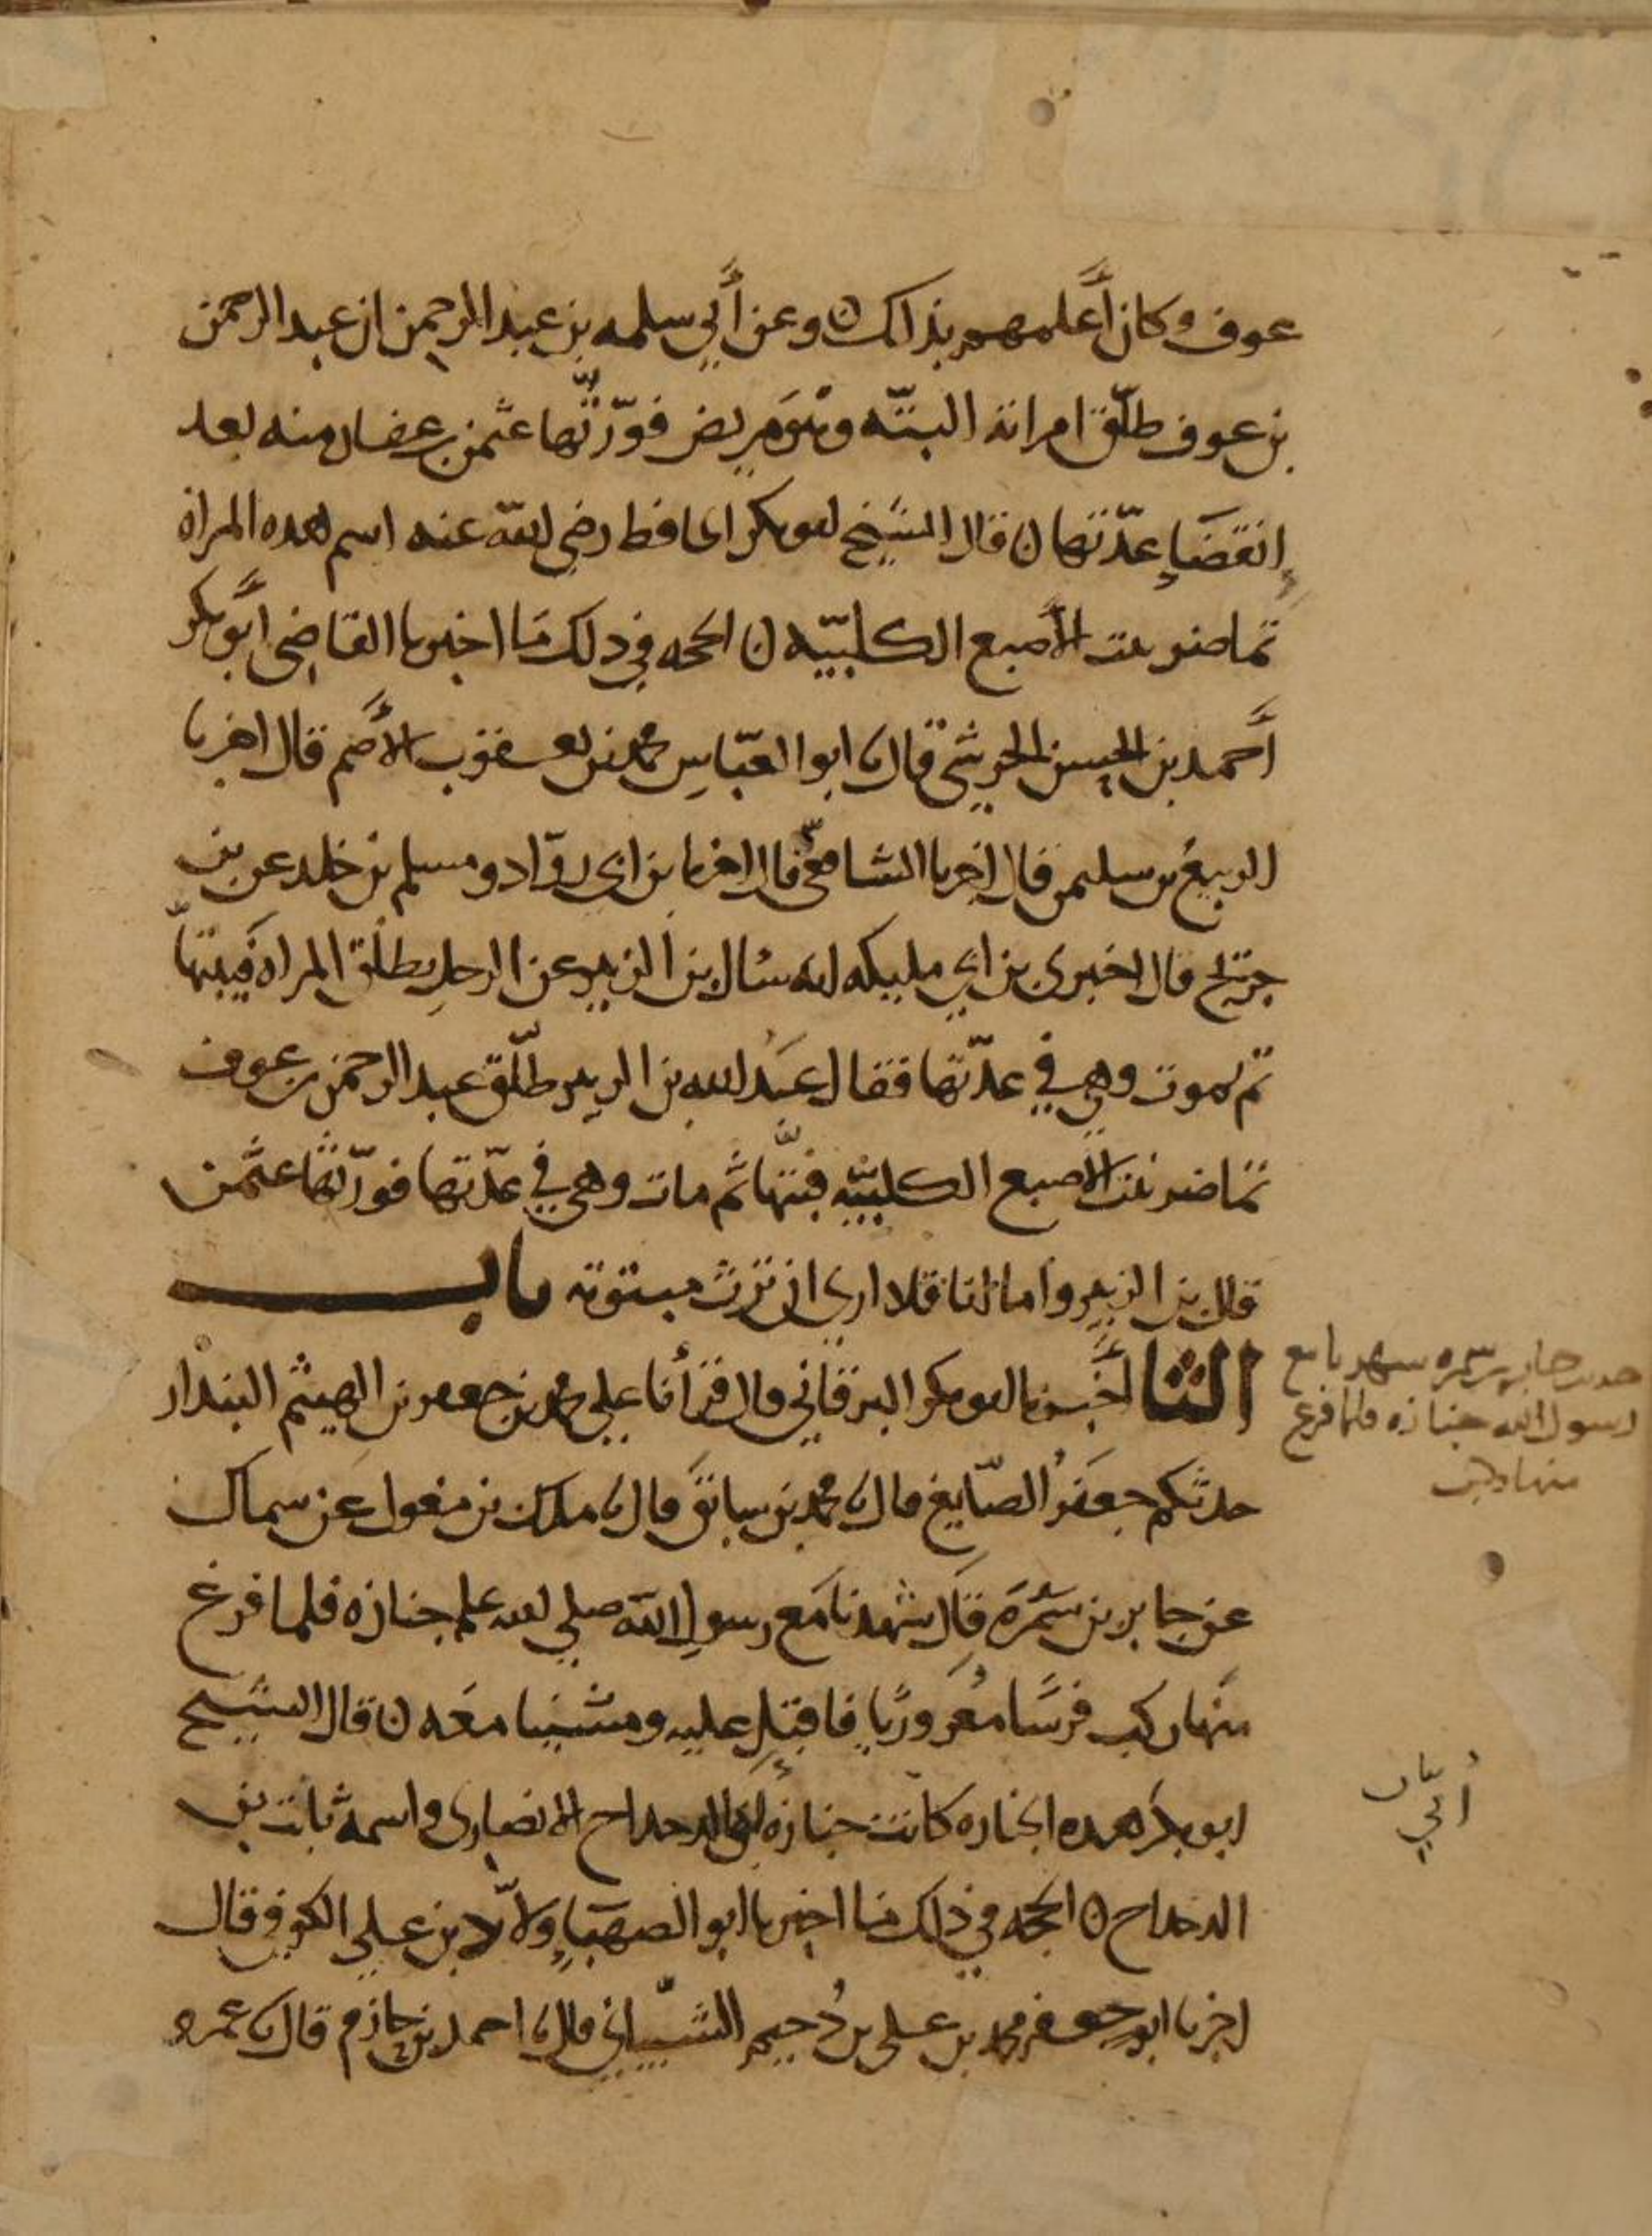 عوف وكان أعلمهم بذاك ن وعن أبي سلمه بن عبد الرحمن ان عبد الرحمن
بن عوف طلّق امراته البتّه وهو مريض فورّثها عثمن بن عفان منه بعد
انقضاء عدّتها ن قال الشيخ ابو بكر الحافظ رضي الله عنه اسم هذه المراة
تماضر بنت الأصبع الكلبيّه ن الحجه في ذلك ما اخبرنا القاضي أبو بكر
أحمد بن الحسن الحرشي قال نا ابوا العبّاس محمد بن يعقوب الأصم قال اخبرنا
الربيع بن سليمن قال اخبرنا الشافعي قال اخبرنا بن ابي روّاد ومسلم بن خلد عن بن
جريج قال اخبرني بن ابي مليكه انه سال بن الزبير عن الرجل يطلق المراه فيبتّها
ثم يموت وهي في عدّتها فقال عبد الله بن الزبير طلّق عبد الرحمن بن عوف
تماضر بنت الأصبع الكلبيّه فبتّها ثم مات وهي في عدّتها فورّثها عثمن
قال بن الزبير واما انا فلا اري ان ترث مبتوته باب
الثا أخبرنا ابو بكر البرقاني قال قرأنا علي محمد بن جعفر بن الهيثم البندار
حدثكم جعفر الصّايغ قال نا محمد بن سابق قال نا ملك بن مغول عن سماك
عن جابر بن سمرة قال شهدنا مع رسول الله صلي الله عليه جنازه فلما فرغ
منها ركب فرسًا معروريًا فاقبل عليه ومشينا معه ن قال الشيخ
ابو بكر هذه الجنازه كانت جنازة ابن الدحداح الانصاري واسمه ثابت بن
الدحداح ن الحجه في ذلك ما اخبرنا ابو الصهباء ولّاد بن علي الكوفي قال
اخبرنا ابو جعفر محمد بن علي بن دُحيم الشيباني قال نا احمد بن حازم قال نا عمرو
حديث جابر بن سمره شهدنا مع
رسول الله جنازه فلما فرغ
منها ركب